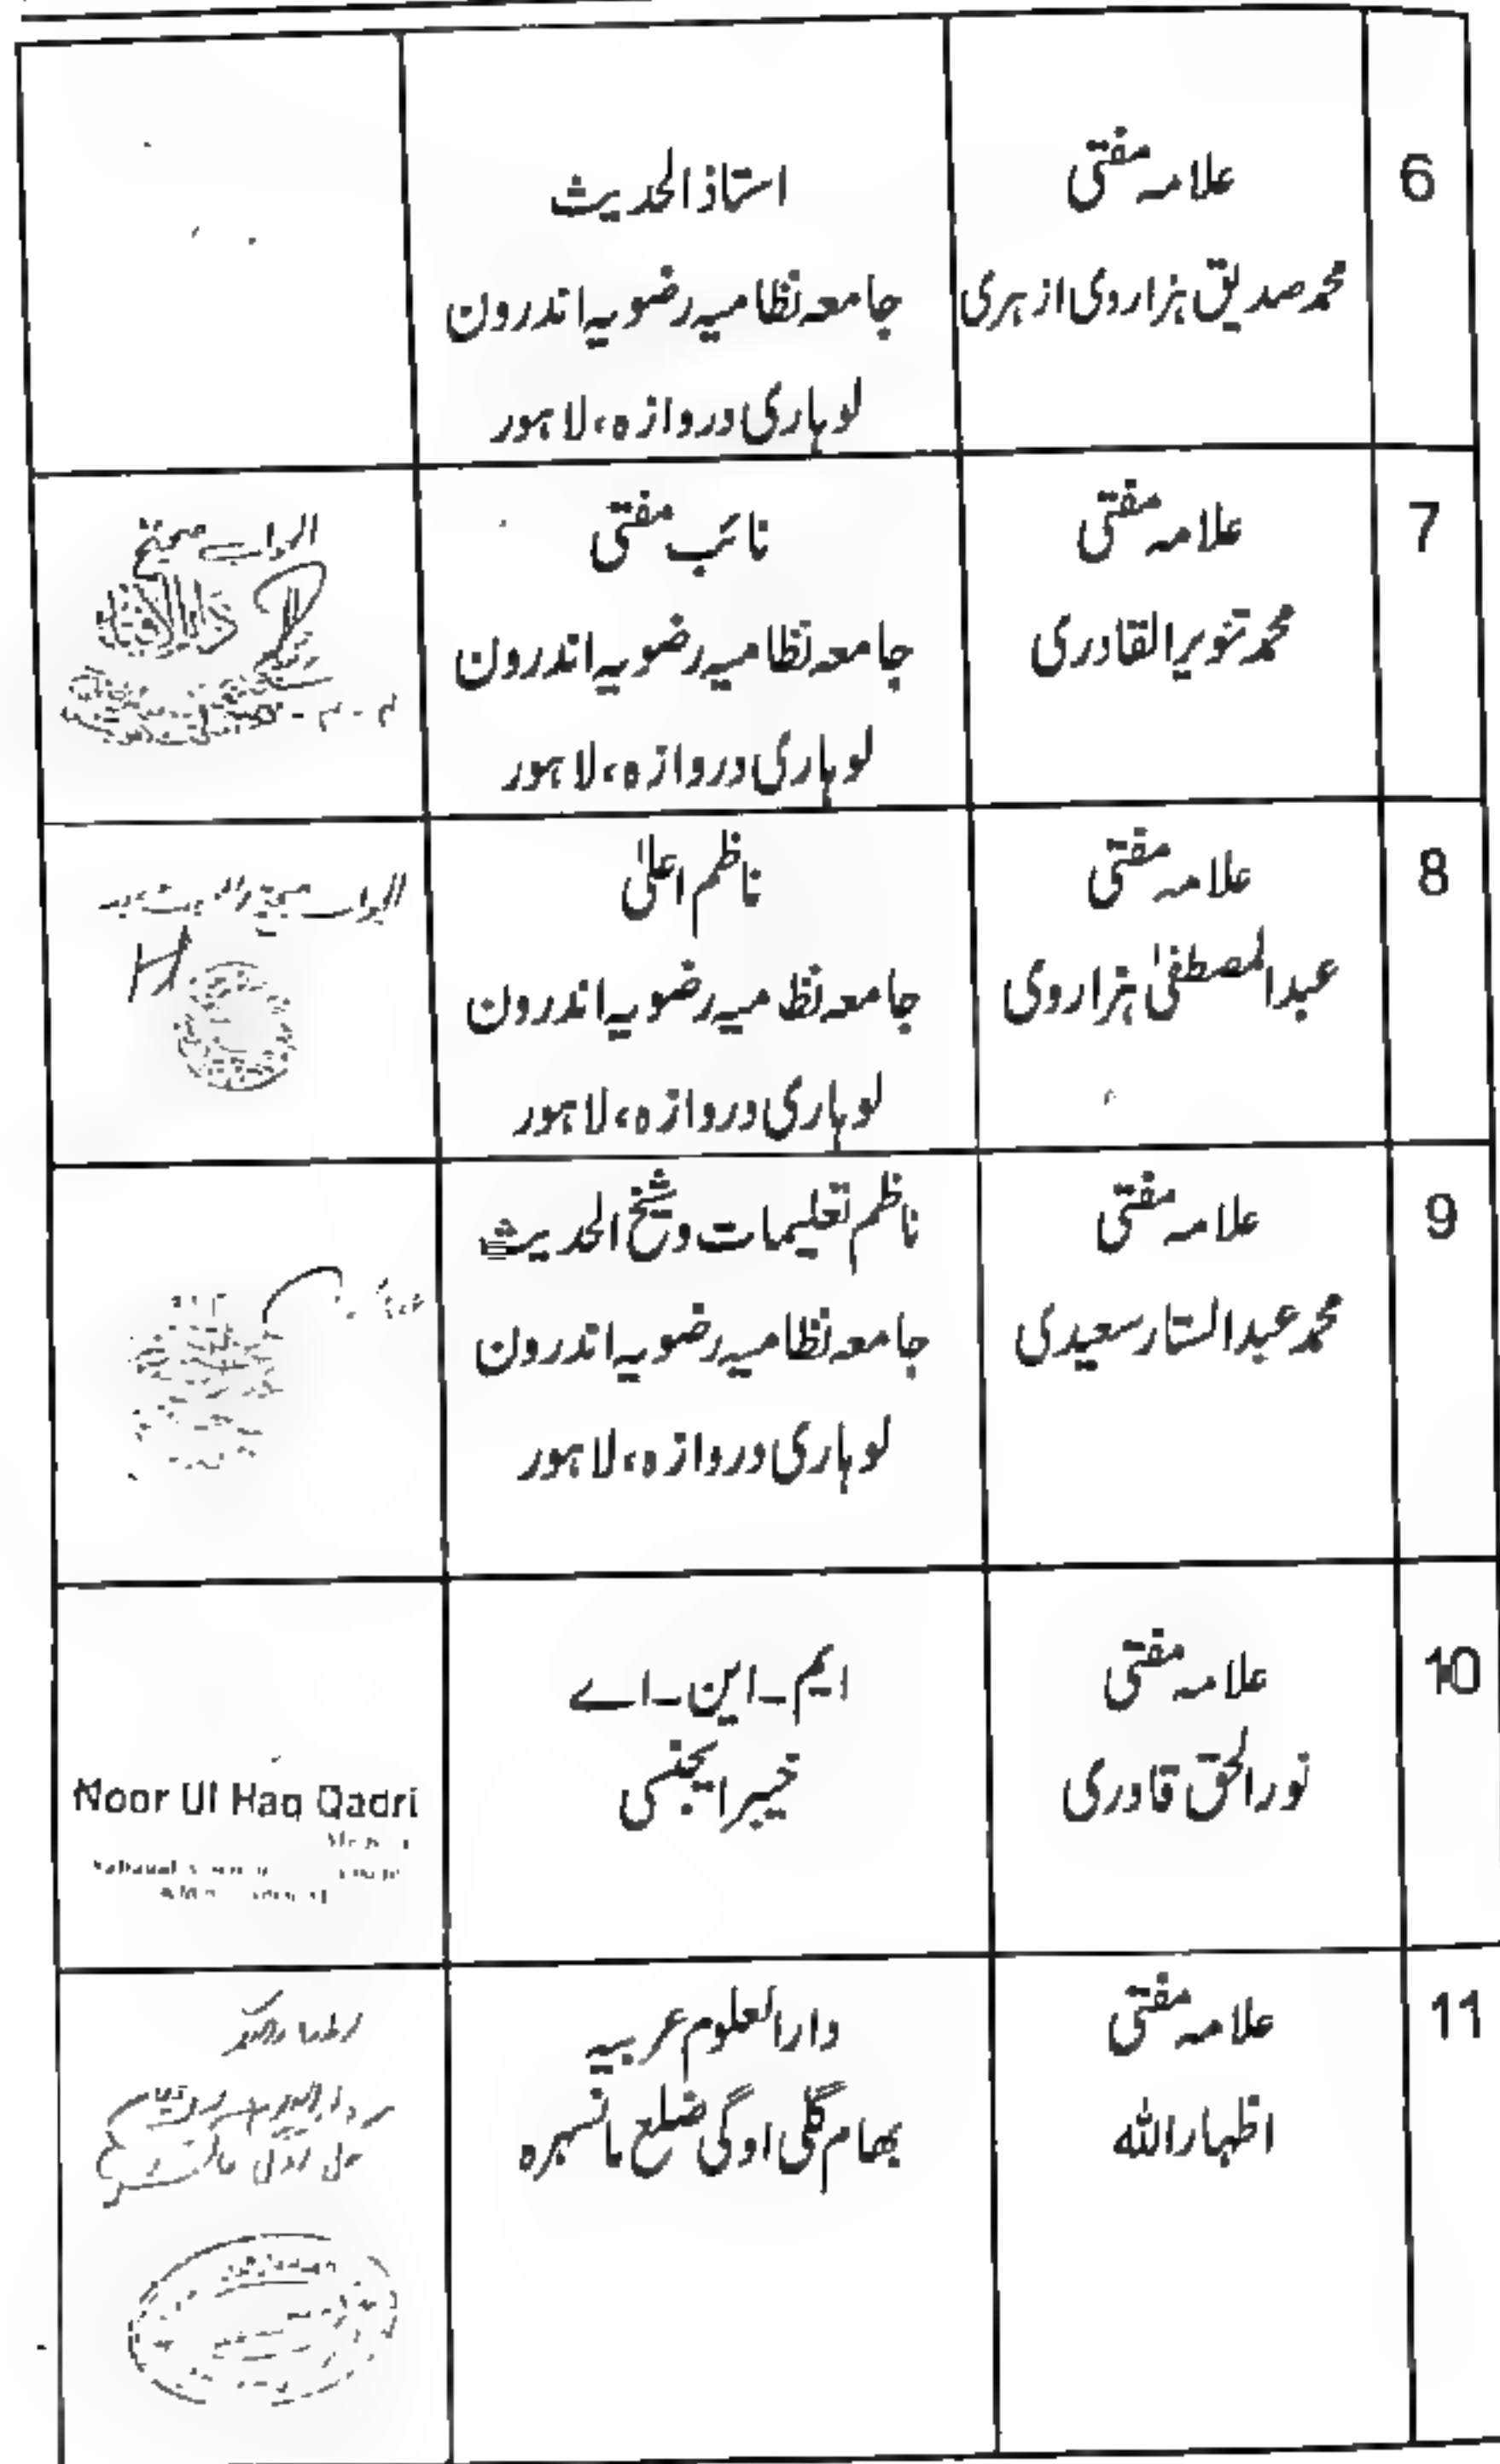 6
علامہ مفتی
محمد صدیق ہزاروی ازہری
استاذ الحدیث
جامعہ نظامیہ رضویہ اندرون
لوہاری دروازہ، لاہور
7
علامہ مفتی
محمد تنویر القادری
نائب مفتی
جامعہ نظامیہ رضویہ اندرون
لوہاری دروازہ، لاہور
8
علامہ مفتی
عبدالمصطفیٰ ہزاروی
ناظم اعلیٰ
جامعہ نظامیہ رضویہ اندرون
لوہاری دروازہ، لاہور
9
علامہ مفتی
محمد عبدالستار سعیدی
ناظم تعلیمات و شیخ الحدیث
جامعہ نظامیہ رضویہ اندرون
لوہاری دروازہ، لاہور
10
علامہ مفتی
نورالحق قادری
ایم۔این۔اے
خیبر ایجنسی
Noor Ul Haq Qadri
11
علامہ مفتی
اظہار اللہ
دارالعلوم عربیہ
بھام گلی اوگی ضلع مانسہرہ